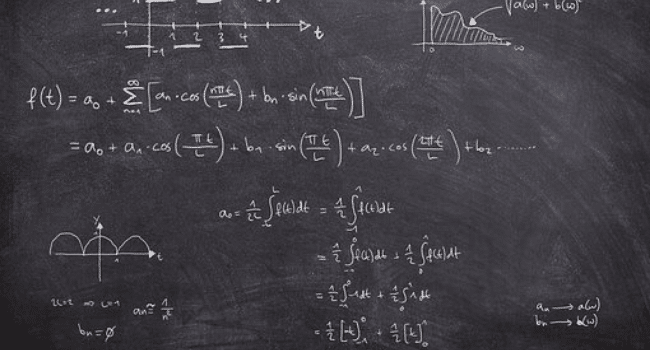 ... ...
-1 1 2 3 4 t
-1
√a(ω) + b(ω)²
0 ω
f(t) = a₀ + ∑ₙ₌₁^∞ [aₙ·cos(nπt/L) + bₙ·sin(nπt/L)]
= a₀ + a₁·cos(πt/L) + b₁·sin(πt/L) + a₂·cos(2πt/L) + b₂ ........
a₀ = 1/2L ∫₋L^L f(t)dt = 1/2 ∫₋₁^1 f(t)dt
= 1/2 ∫₋₁^0 f(t)dt + 1/2 ∫₀^1 f(t)dt
y
1
1 t
= 1/2 ∫₋₁^0 -1dt + 1/2 ∫₀^1 1dt
2L=2 ⇒ L=1 aₙ ≈ 1/n²
bₙ = ∅
= 1/2 [-t]₋₁^0 + 1/2 [t]₀^1
aₙ → a(ω)
bₙ → b(ω)